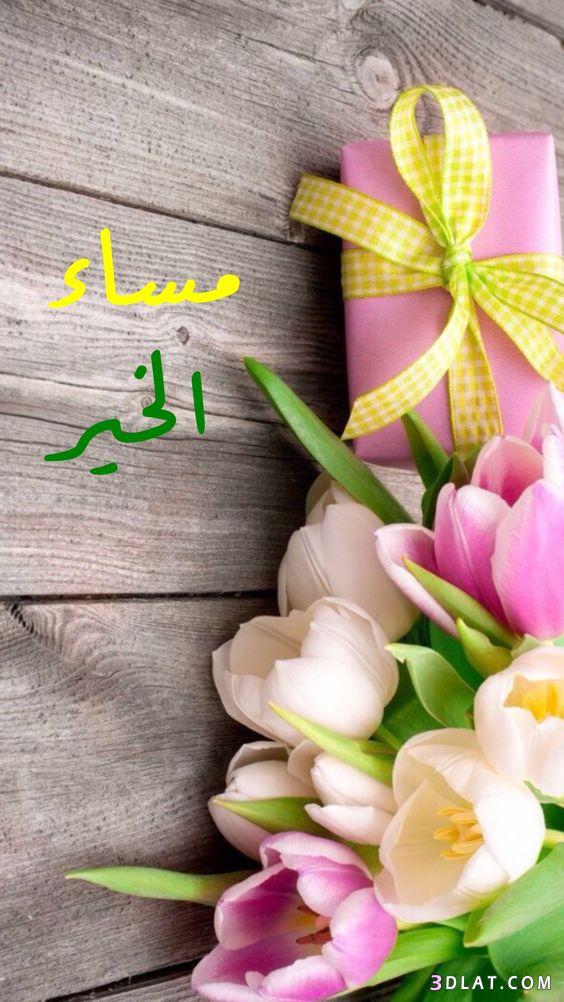 مساء
الخير
3DLAT.COM